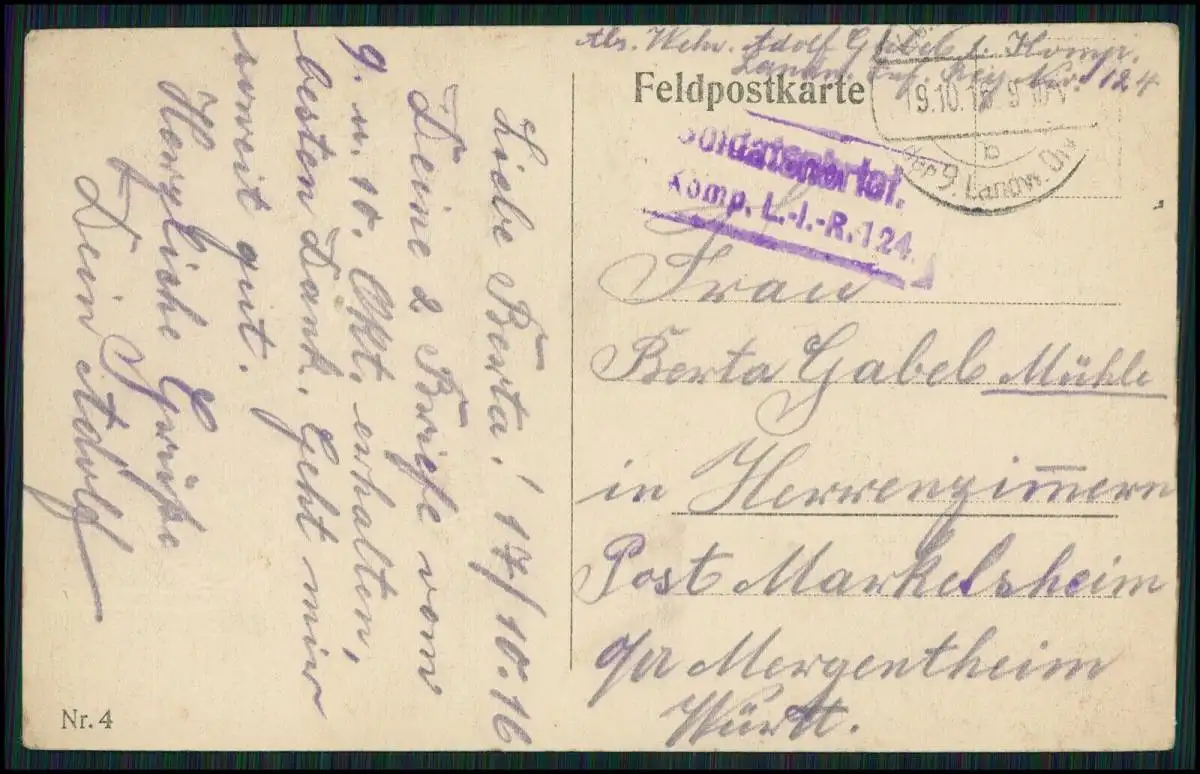 Abs. Wehr. Adolf Gabel 1. Komp.
Landw. Inf. Reg. Nr. 124
Feldpostkarte
19.10.16 9
der 9. Landw. Div
Soldatenbrief.
Komp. L.-I.-R. 124.
Frau
Berta Gabel Mühle
in Herrenzim̅ern
Post Markelsheim
o/a Mergentheim
Württ.
Liebe Berta! 17/10.16
Deine 2 Briefe vom
9. u. 10. Okt. erhalten,
besten Dank. Geht mir
soweit gut.
Herzliche Grüße
Dein Adolf
Nr. 4